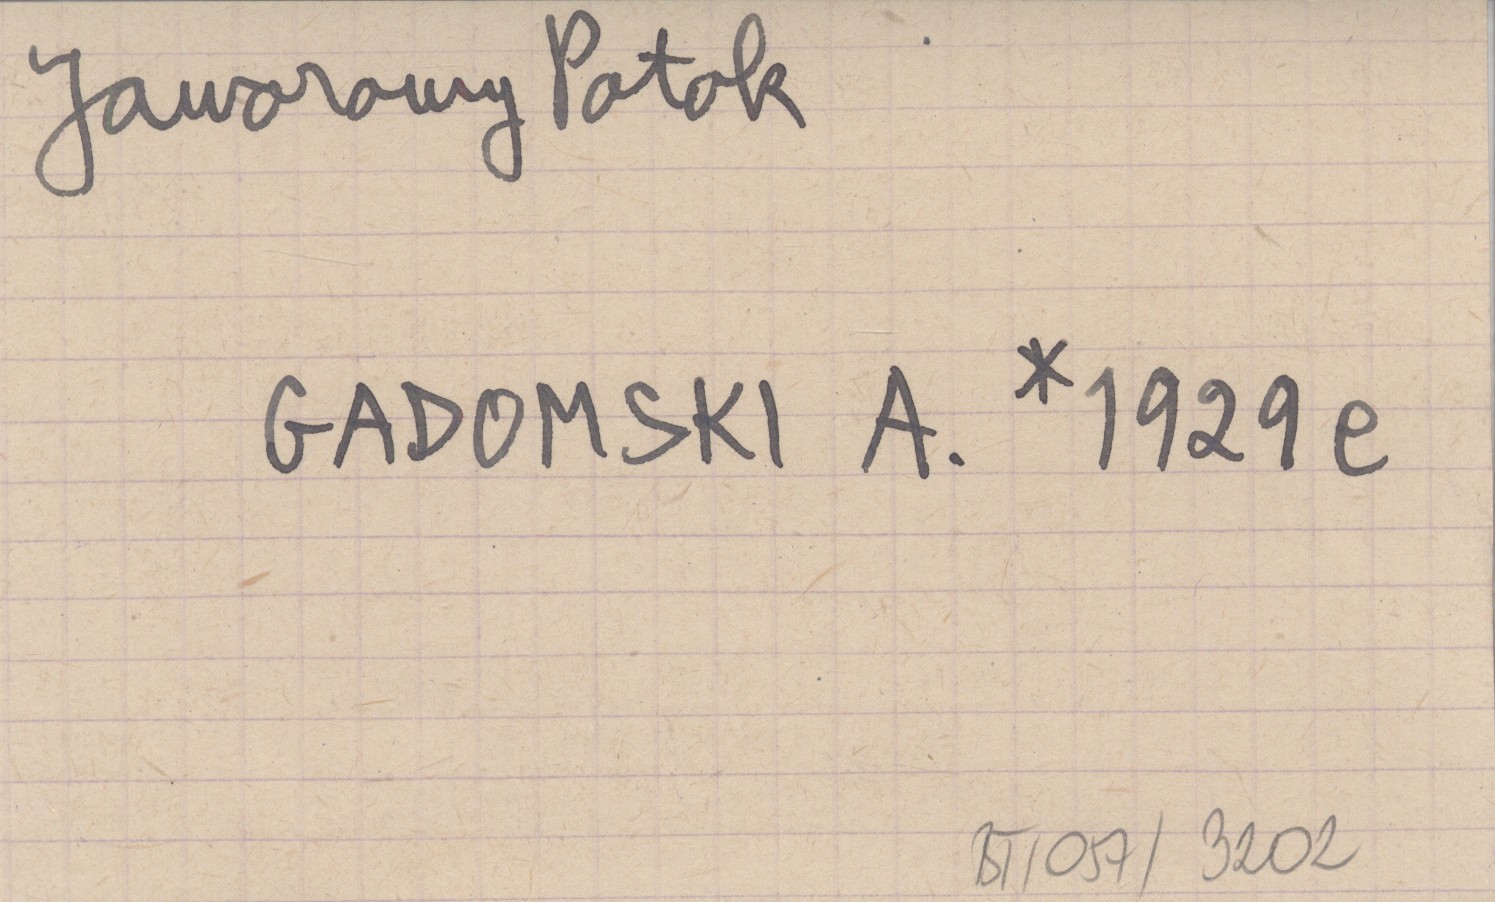 Jaworowy Potok
GADOMSKI A. *1929e
BT/057/3202